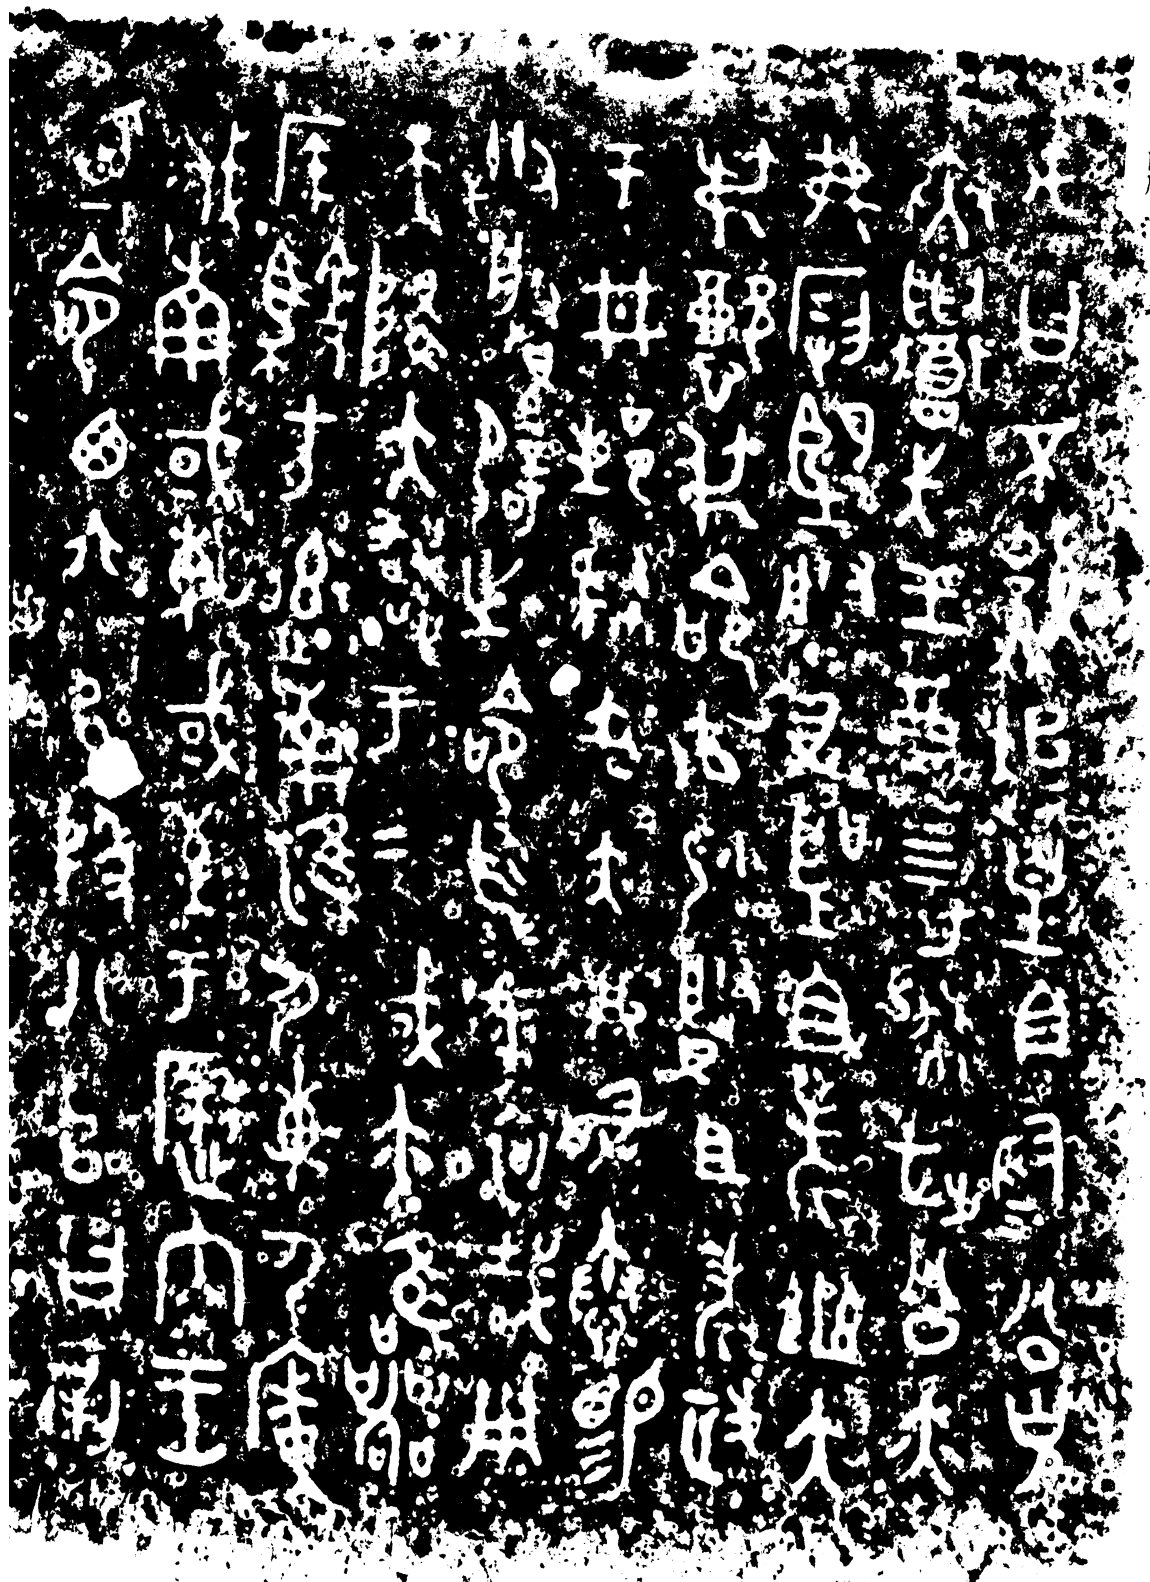 禹曰不顯趄趄皇且穆公克
夾召先王奠四方肆武公亦
弗叚望朕聖且考幽大
弔懿弔命禹仦朕且考政
于井邦肆禹亦弗敢惷
賜共朕辟之命烏虖哀哉用
天降大喪于下或亦唯噩
侯馭方率南淮尸東尸廣
伐南或東或至于歷內王
迺命西六𠂤殷八𠂤曰